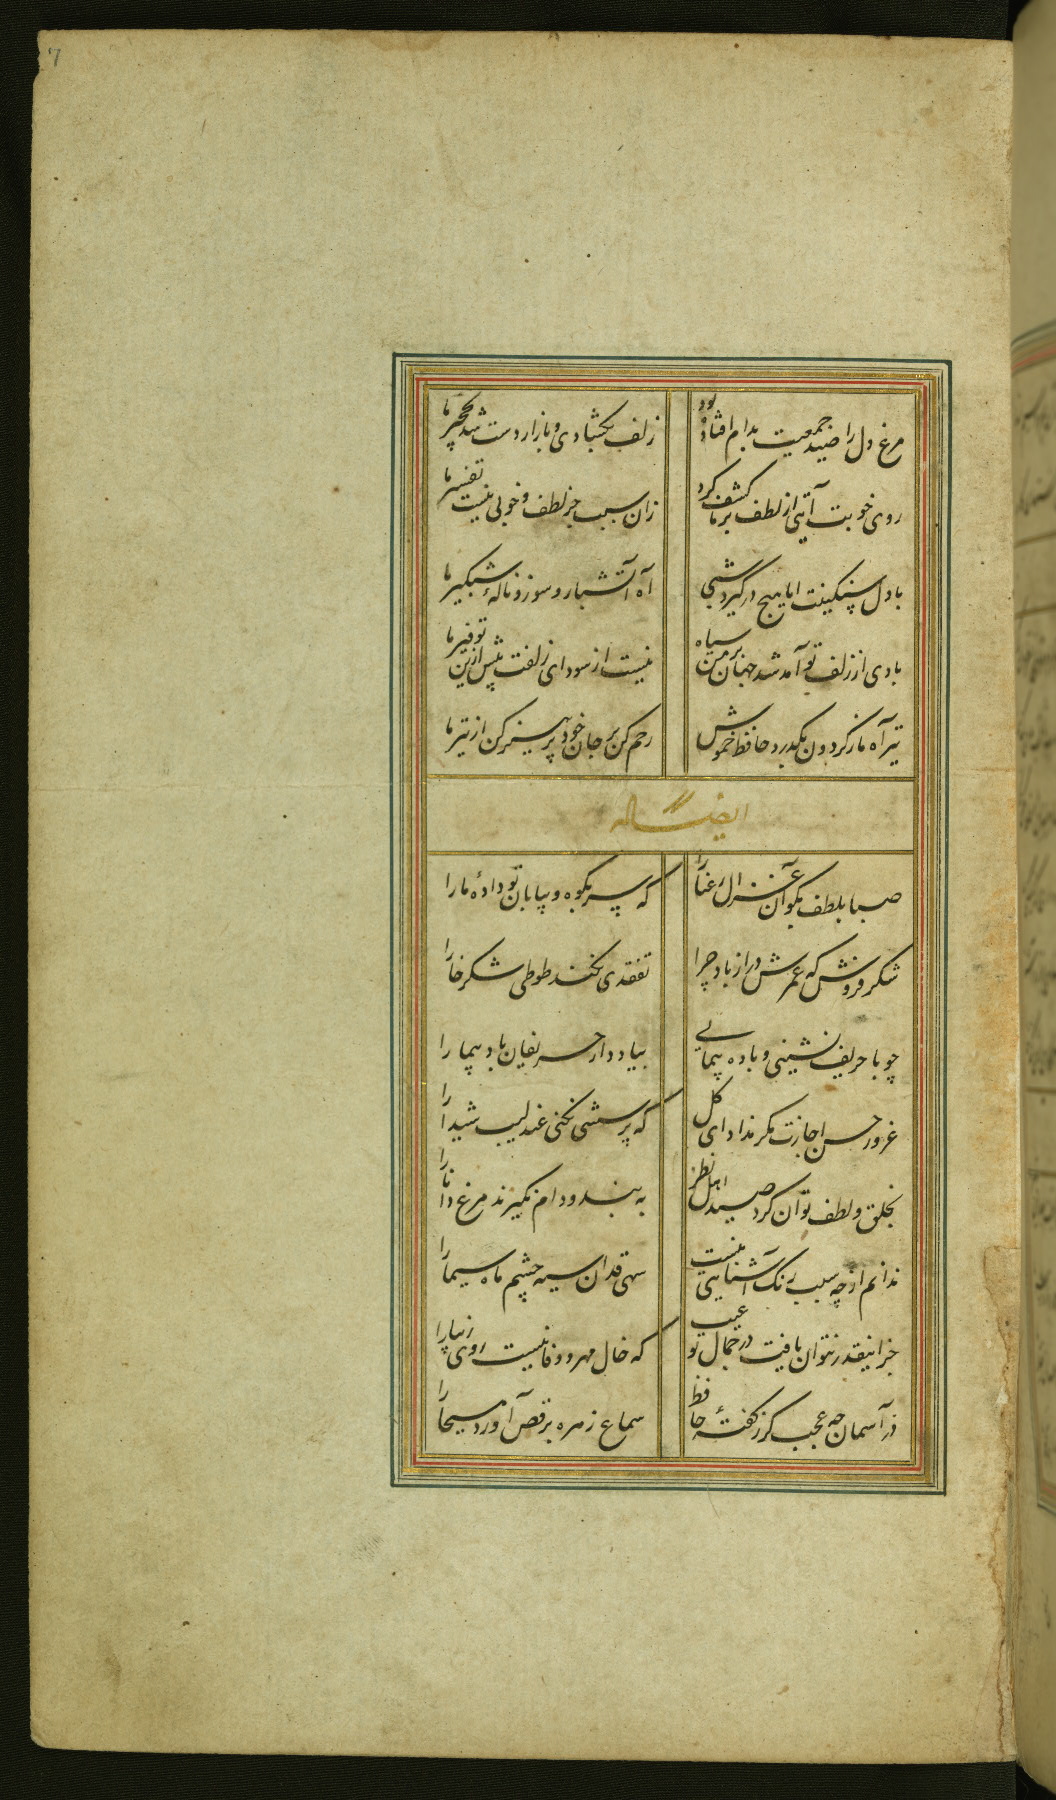 مرغ دل را صید جمعیت بدام افتاده بود
زلف بگشادی و باز از دست شد نخچیر ما
روی خوبت آیتی از لطف بر ما کشف کرد
زان سبب جز لطف و خوبی نیست تفسیر ما
با دل سنگینت ایا هیچ درگیرد شبی
آه آتشبار و سوز و ناله شبگیر ما
بادی از زلف تو آمد شد جهان بر من سیاه
نیست از سودای زلفت بیش ازین توفیر ما
تیر آه ما ز گردون بگذرد حافظ خموش
رحم کن بر جان خود پرهیز کن از تیر ما
ایضا له
صبا بلطف بگو آن غزال رعنا را
که سر بکوه و بیابان تو داده ما را
شکر فروش که عمرش دراز باد چرا
تفقدی نکند طوطی شکر خا را
چو با حریف نشینی و باده پیمایی
بیاد دار حریفان باد پیما را
غرور حسن اجازت مگر نداد ای گل
که پرسشی نکنی عندلیب شیدا را
بخلق و لطف توان کرد صید اهل نظر
به بند و دام نگیرند مرغ دانا را
ندانم از چه سبب رنگ آشنایی نیست
سهی قدان سیه چشم ماه سیما را
جز اینقدر نتوان یافت در جمال تو عیب
که خال مهر و وفا نیست روی زیبا را
در آسمان چه عجب گر ز گفته حافظ
سماع زهره برقص آورد مسیحا را